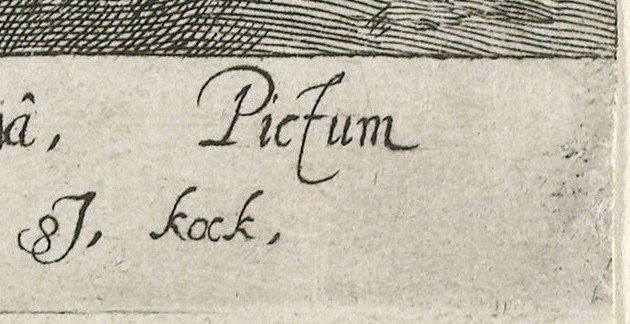 â, Pictum
J. kock,